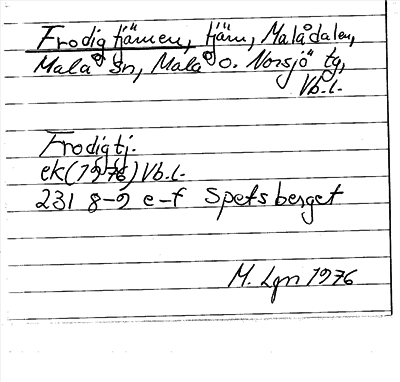 Frodigtjärnen, tjärn, Malådalen,
Malå sn, Malå o. Norsjö tg,
Vb.l.
Frodigtj.
ek(1976)Vb.l.
231 8-9 e-f Spetsberget
M. Lgn 1976